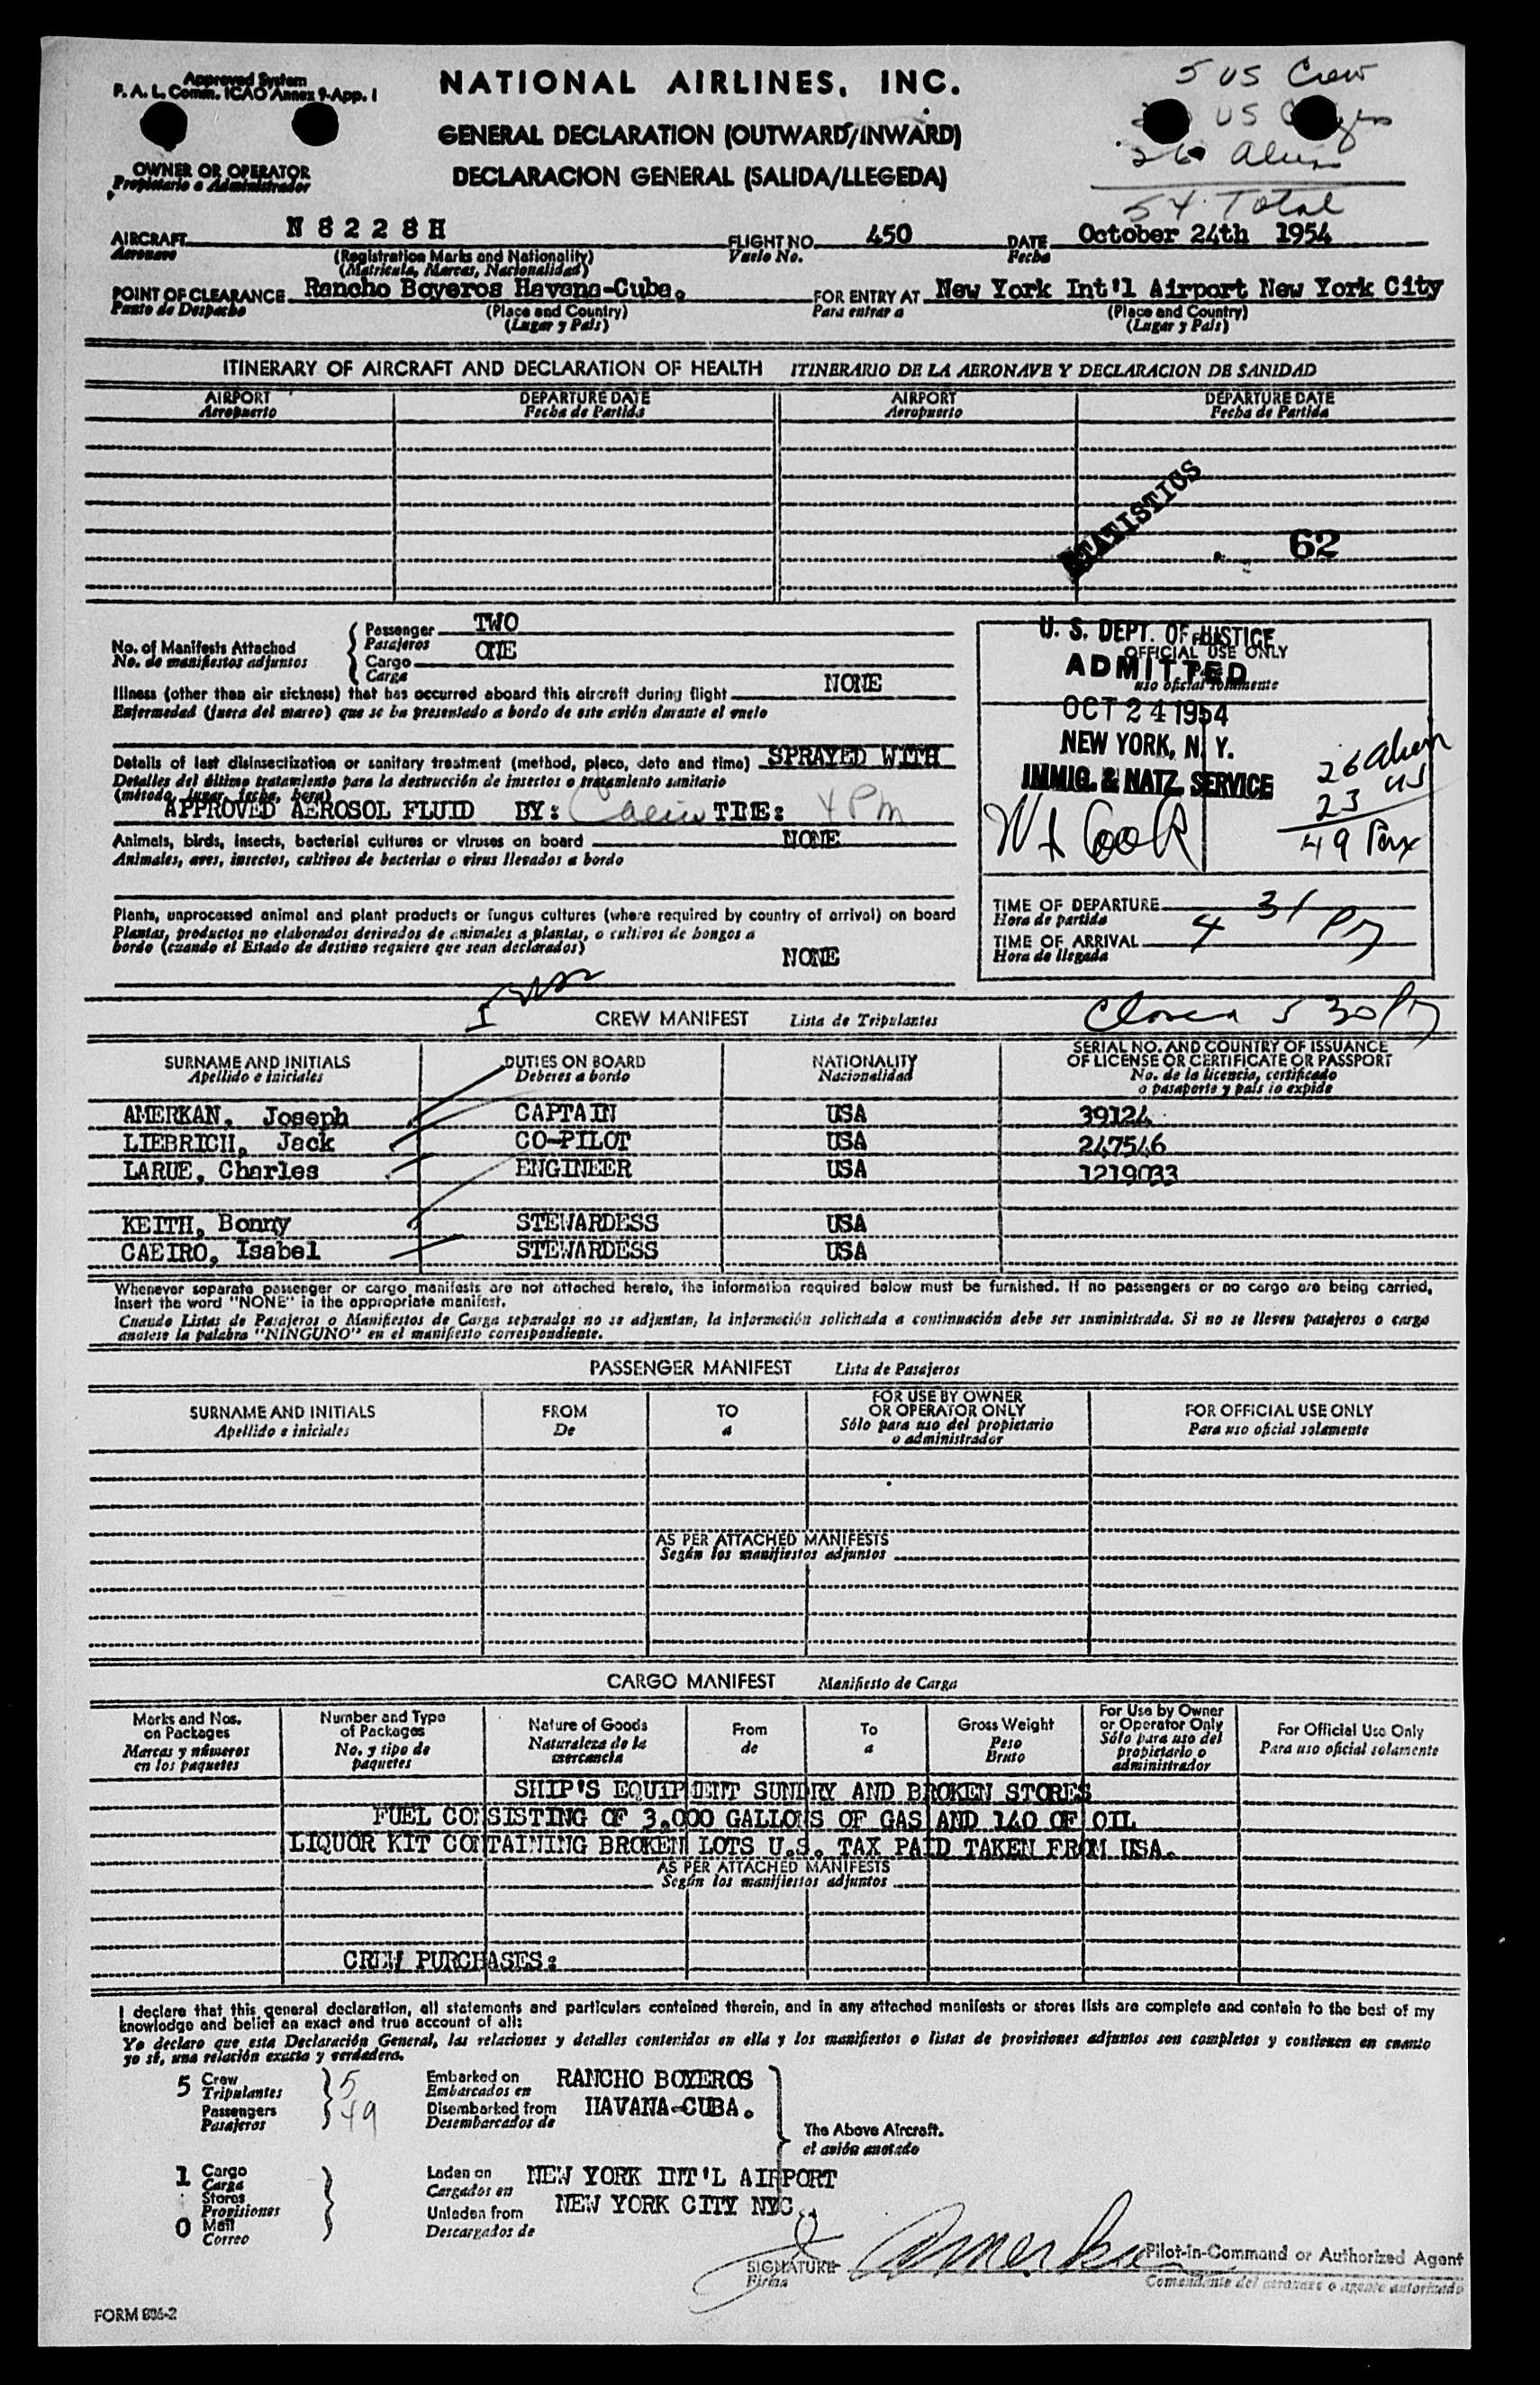 Approved System
F. A. L. Comm. ICAO Annex 9-App. I
NATIONAL AIRLINES, INC.
GENERAL DECLARATION (OUTWARD/INWARD)
DECLARACION GENERAL (SALIDA/LLEGEDA)
OWNER OR OPERATOR
Propietario o Administrador
5 US Crew
US
26 Alien
54 Total
AIRCRAFT N 8 2 2 8 H FLIGHT NO. 450 DATE October 24th 1954
Aeronave Vuelo No. Fecha
(Registration Marks and Nationality)
(Matricula, Marcas, Nacionalidad)
POINT OF CLEARANCE Rancho Boyeros Havana-Cuba. FOR ENTRY AT New York Int'l Airport New York City
Punto de Despacho (Place and Country) Para entrar a (Place and Country)
(Lugar y País) (Lugar y País)
ITINERARY OF AIRCRAFT AND DECLARATION OF HEALTH ITINERARIO DE LA AERONAVE Y DECLARACION DE SANIDAD
AIRPORT DEPARTURE DATE AIRPORT DEPARTURE DATE
Aeropuerto Fecha de Partida Aeropuerto Fecha de Partida
STATISTICS
62
No. of Manifests Attached
No. de manifiestos adjuntos
Passenger TWO
Pasajeros
Cargo ONE
Carga
Illness (other than air sickness) that has occurred aboard this aircraft during flight NONE
Enfermedad (fuera del mareo) que se ha presentado a bordo de este avión durante el vuelo
Details of last disinsectization or sanitary treatment (method, place, date and time) SPRAYED WITH
Detalles del último tratamiento para la destrucción de insectos o tratamiento sanitario
(método, lugar, fecha, hora)
APPROVED AEROSOL FLUID BY: Caeiro TIME: 4 PM
Animals, birds, insects, bacterial cultures or viruses on board NONE
Animales, aves, insectos, cultivos de bacterias o virus llevados a bordo
Plants, unprocessed animal and plant products or fungus cultures (where required by country of arrival) on board
Plantas, productos no elaborados derivados de animales a plantas, o cultivos de hongos a
bordo (cuando el Estado de destino requiere que sean declarados) NONE
FOR
OFFICIAL USE ONLY
uso oficial solamente
U. S. DEPT. OF JUSTICE
ADMITTED
OCT 24 1954
NEW YORK, N. Y.
IMMIG. & NATZ. SERVICE
26 Alien
23 US
49 Pax
TIME OF DEPARTURE
Hora de partida
4 31 PM
TIME OF ARRIVAL
Hora de llegada
530 PM
CREW MANIFEST Lista de Tripulantes
SURNAME AND INITIALS DUTIES ON BOARD NATIONALITY SERIAL NO. AND COUNTRY OF ISSUANCE
OF LICENSE OR CERTIFICATE OR PASSPORT
Apellido e iniciales Deberes a bordo Nacionalidad No. de la licencia, certificado
o pasaporte y país lo expide
AMERKAN, Joseph CAPTAIN USA 39124
LIEBRICH, Jack CO-PILOT USA 247546
LARUE, Charles ENGINEER USA 1219033
KEITH, Bonny STEWARDESS USA
CAEIRO, Isabel STEWARDESS USA
Whenever separate passenger or cargo manifests are not attached hereto, the information required below must be furnished. If no passengers or no cargo are being carried,
insert the word "NONE" in the appropriate manifest.
Cuando Listas de Pasajeros o Manifiestos de Carga separados no se adjuntan, la información solicitada a continuación debe ser suministrada. Si no se lleven pasajeros o carga
anotese la palabra "NINGUNO" en el manifiesto correspondiente.
PASSENGER MANIFEST Lista de Pasajeros
SURNAME AND INITIALS FROM TO FOR USE BY OWNER
OR OPERATOR ONLY FOR OFFICIAL USE ONLY
Apellido e iniciales De a Sólo para uso del propietario
o administrador Para uso oficial solamente
AS PER ATTACHED MANIFESTS
Según los manifiestos adjuntos
CARGO MANIFEST Manifiesto de Carga
Marks and Nos.
on Packages
Marcas y números
en los paquetes
Number and Type
of Packages
No. y tipo de
paquetes
Nature of Goods
Naturaleza de la
mercancía
From
de
To
a
Gross Weight
Peso
Bruto
For Use by Owner
or Operator Only
Sólo para uso del
propietario o
administrador
For Official Use Only
Para uso oficial solamente
SHIP'S EQUIPMENT SUNDRY AND BROKEN STORES
FUEL CONSISTING OF 3,000 GALLONS OF GAS AND 140 OF OIL
LIQUOR KIT CONTAINING BROKEN LOTS U.S. TAX PAID TAKEN FROM USA.
AS PER ATTACHED MANIFESTS
Según los manifiestos adjuntos
CREW PURCHASES:
I declare that this general declaration, all statements and particulars contained therein, and in any attached manifests or stores lists are complete and contain to the best of my
knowledge and belief an exact and true account of all:
Yo declaro que esta Declaración General, las relaciones y detalles contenidos en ella y los manifiestos o listas de provisiones adjuntos son completos y contienen en cuanto
yo sé, una relación exacta y verdadera.
5 Crew 5
Tripulantes
Passengers 49
Pasajeros
Embarked on RANCHO BOYEROS
Embarcados en
Disembarked from HAVANA-CUBA.
Desembarcados de
The Above Aircraft.
el avión anotado
1 Cargo
Carga
Stores
Provisiones
0 Mail
Correo
Laden on NEW YORK INT'L AIRPORT
Cargados en
Unladen from NEW YORK CITY NYC.
Descargados de
SIGNATURE J Amerkan Pilot-in-Command or Authorized Agent
Firma Comandante del aeronave o agente autorizado
FORM 806-2